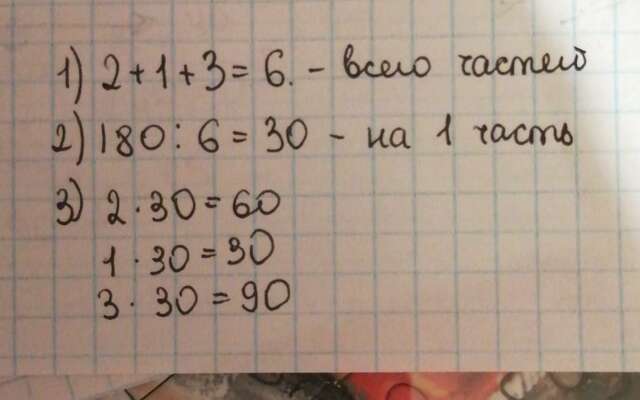 1) 2+1+3=6. - всего частей
2) 180:6=30 - на 1 часть
3) 2·30=60
1·30=30
3·30=90